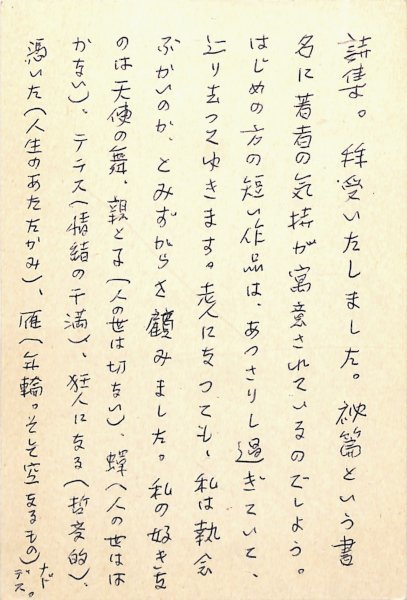 詩集。拝受いたしました。祕篇という書
名に著者の気持が寓意されているのでしよう。
はじめの方の短い作品は、あつさりし過ぎていて、
辷り去つてゆきます。老人になつても、私は執念
ぶかいのか、とみずからを顧みました。私の好きな
のは天使の舞、親と子(人の世は切ない)、蝉(人の世はは
かない)、テテス(情緒の干満)、狂人になる(哲学的)、
憑いた(人生のあたたかみ)、雁(年輪。そして空なるもの)ナドデス。